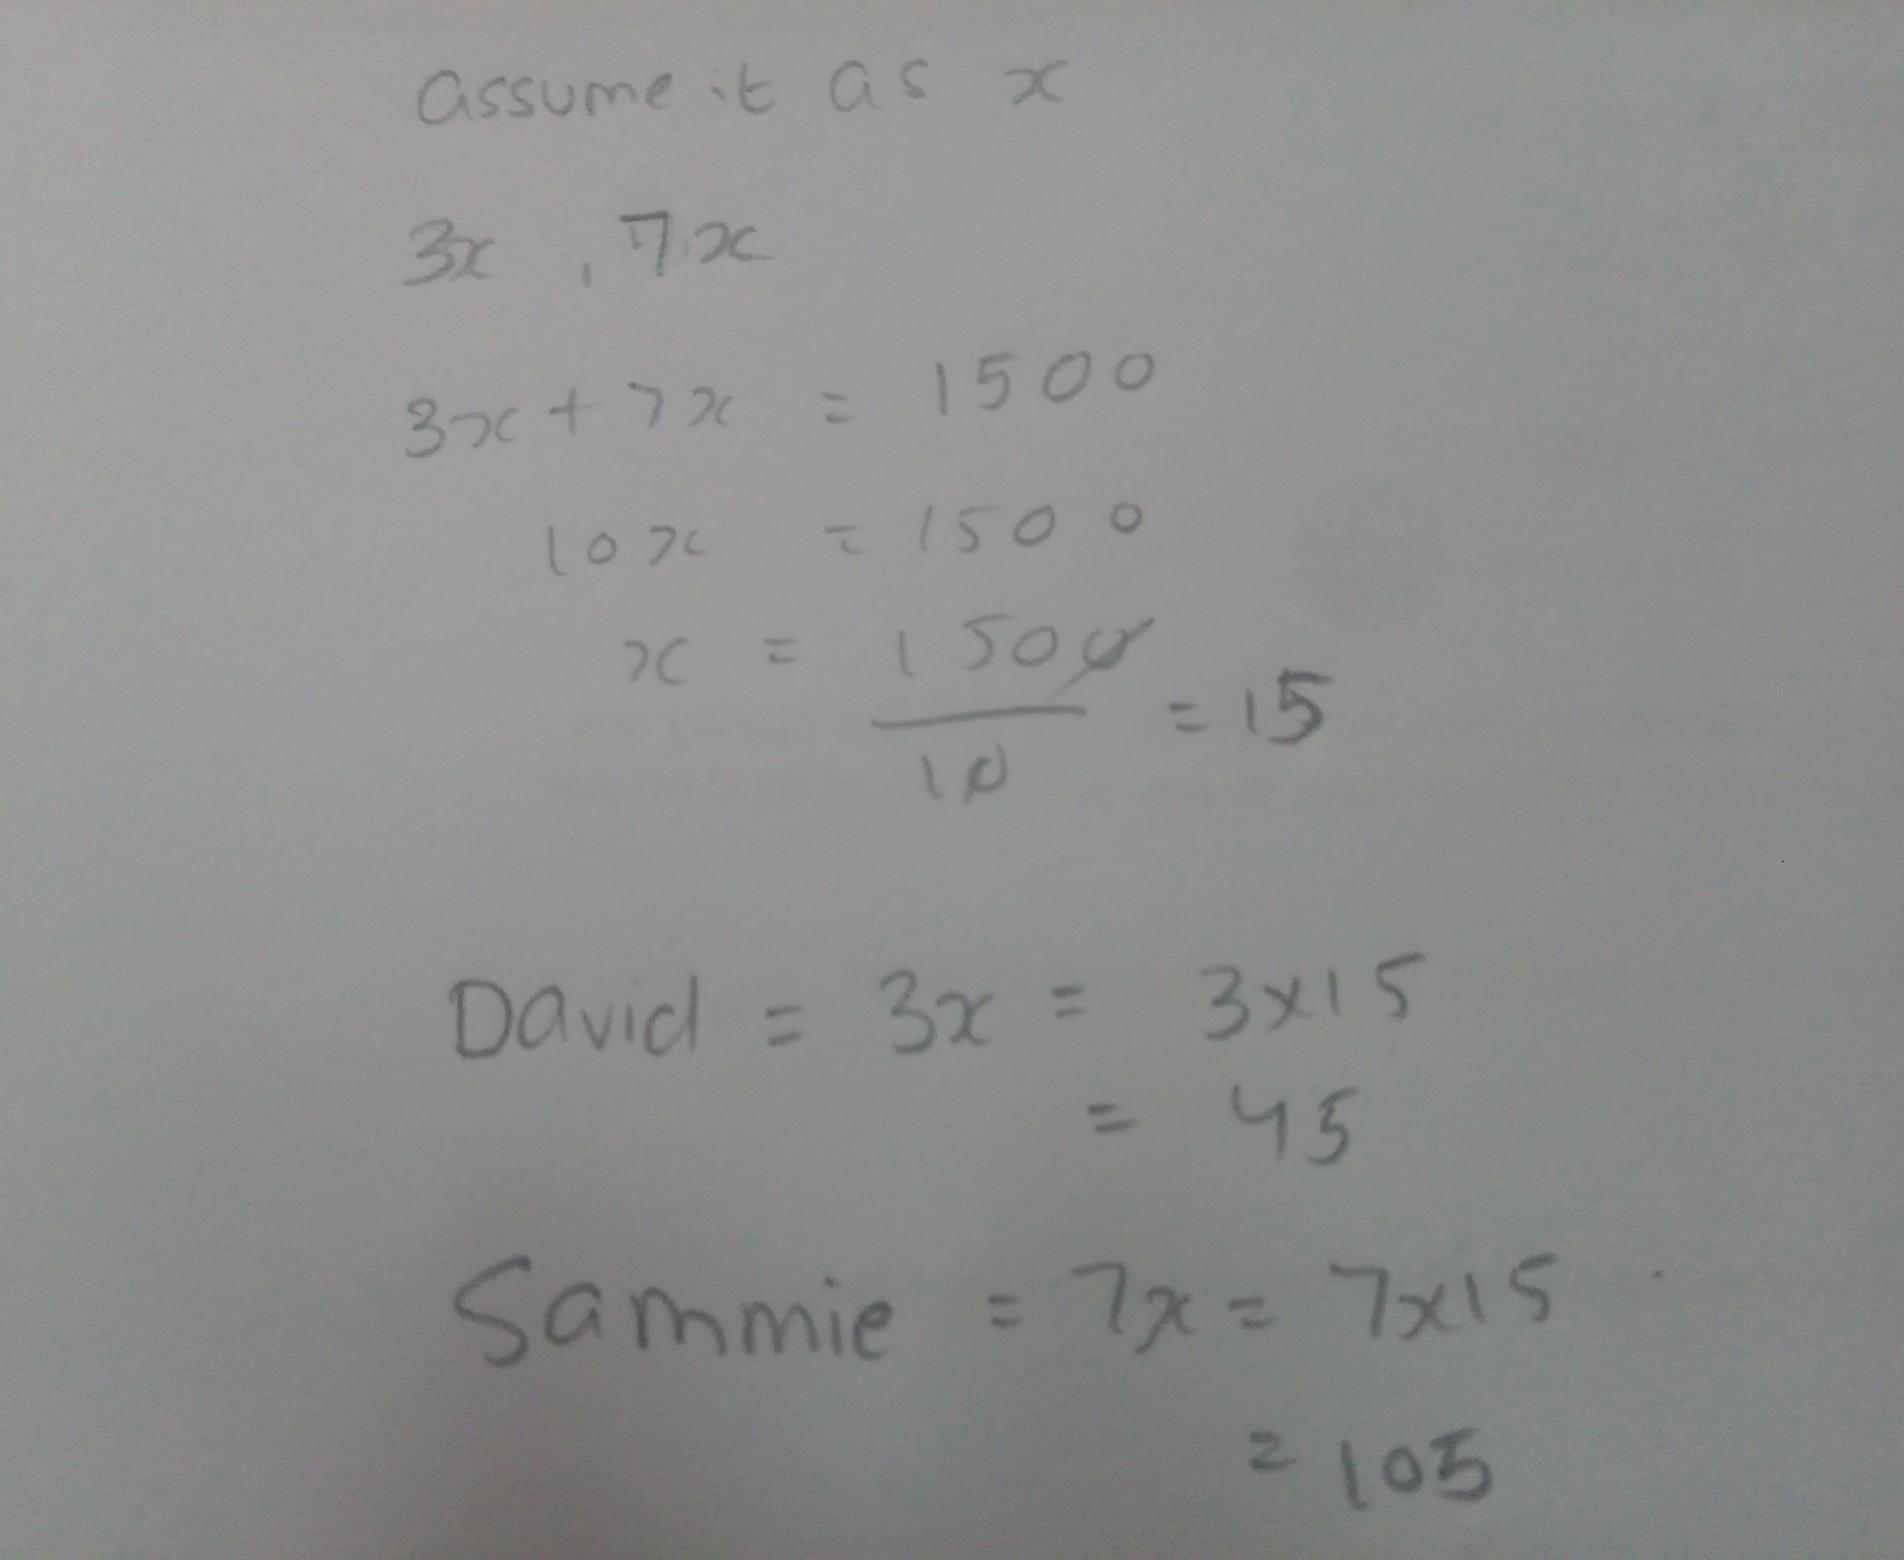 assume it as x
3x , 7x
3x + 7x = 1500
10x = 1500
x = 1500/10 = 15
David = 3x = 3x15
= 45
Sammie = 7x = 7x15
= 105